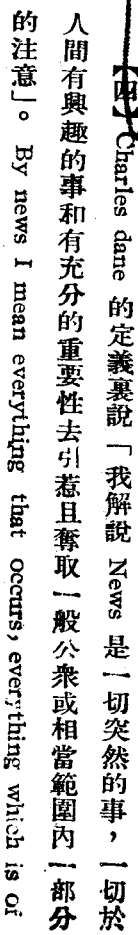 【四】Charles dane 的定義裏說「我解說 News 是一切突然的事，一切於
人間有興趣的事和有充分的重要性去引惹且奪取一般公衆或相當範圍內一部分
的注意」。By news I mean everything that occurs, everything which is of